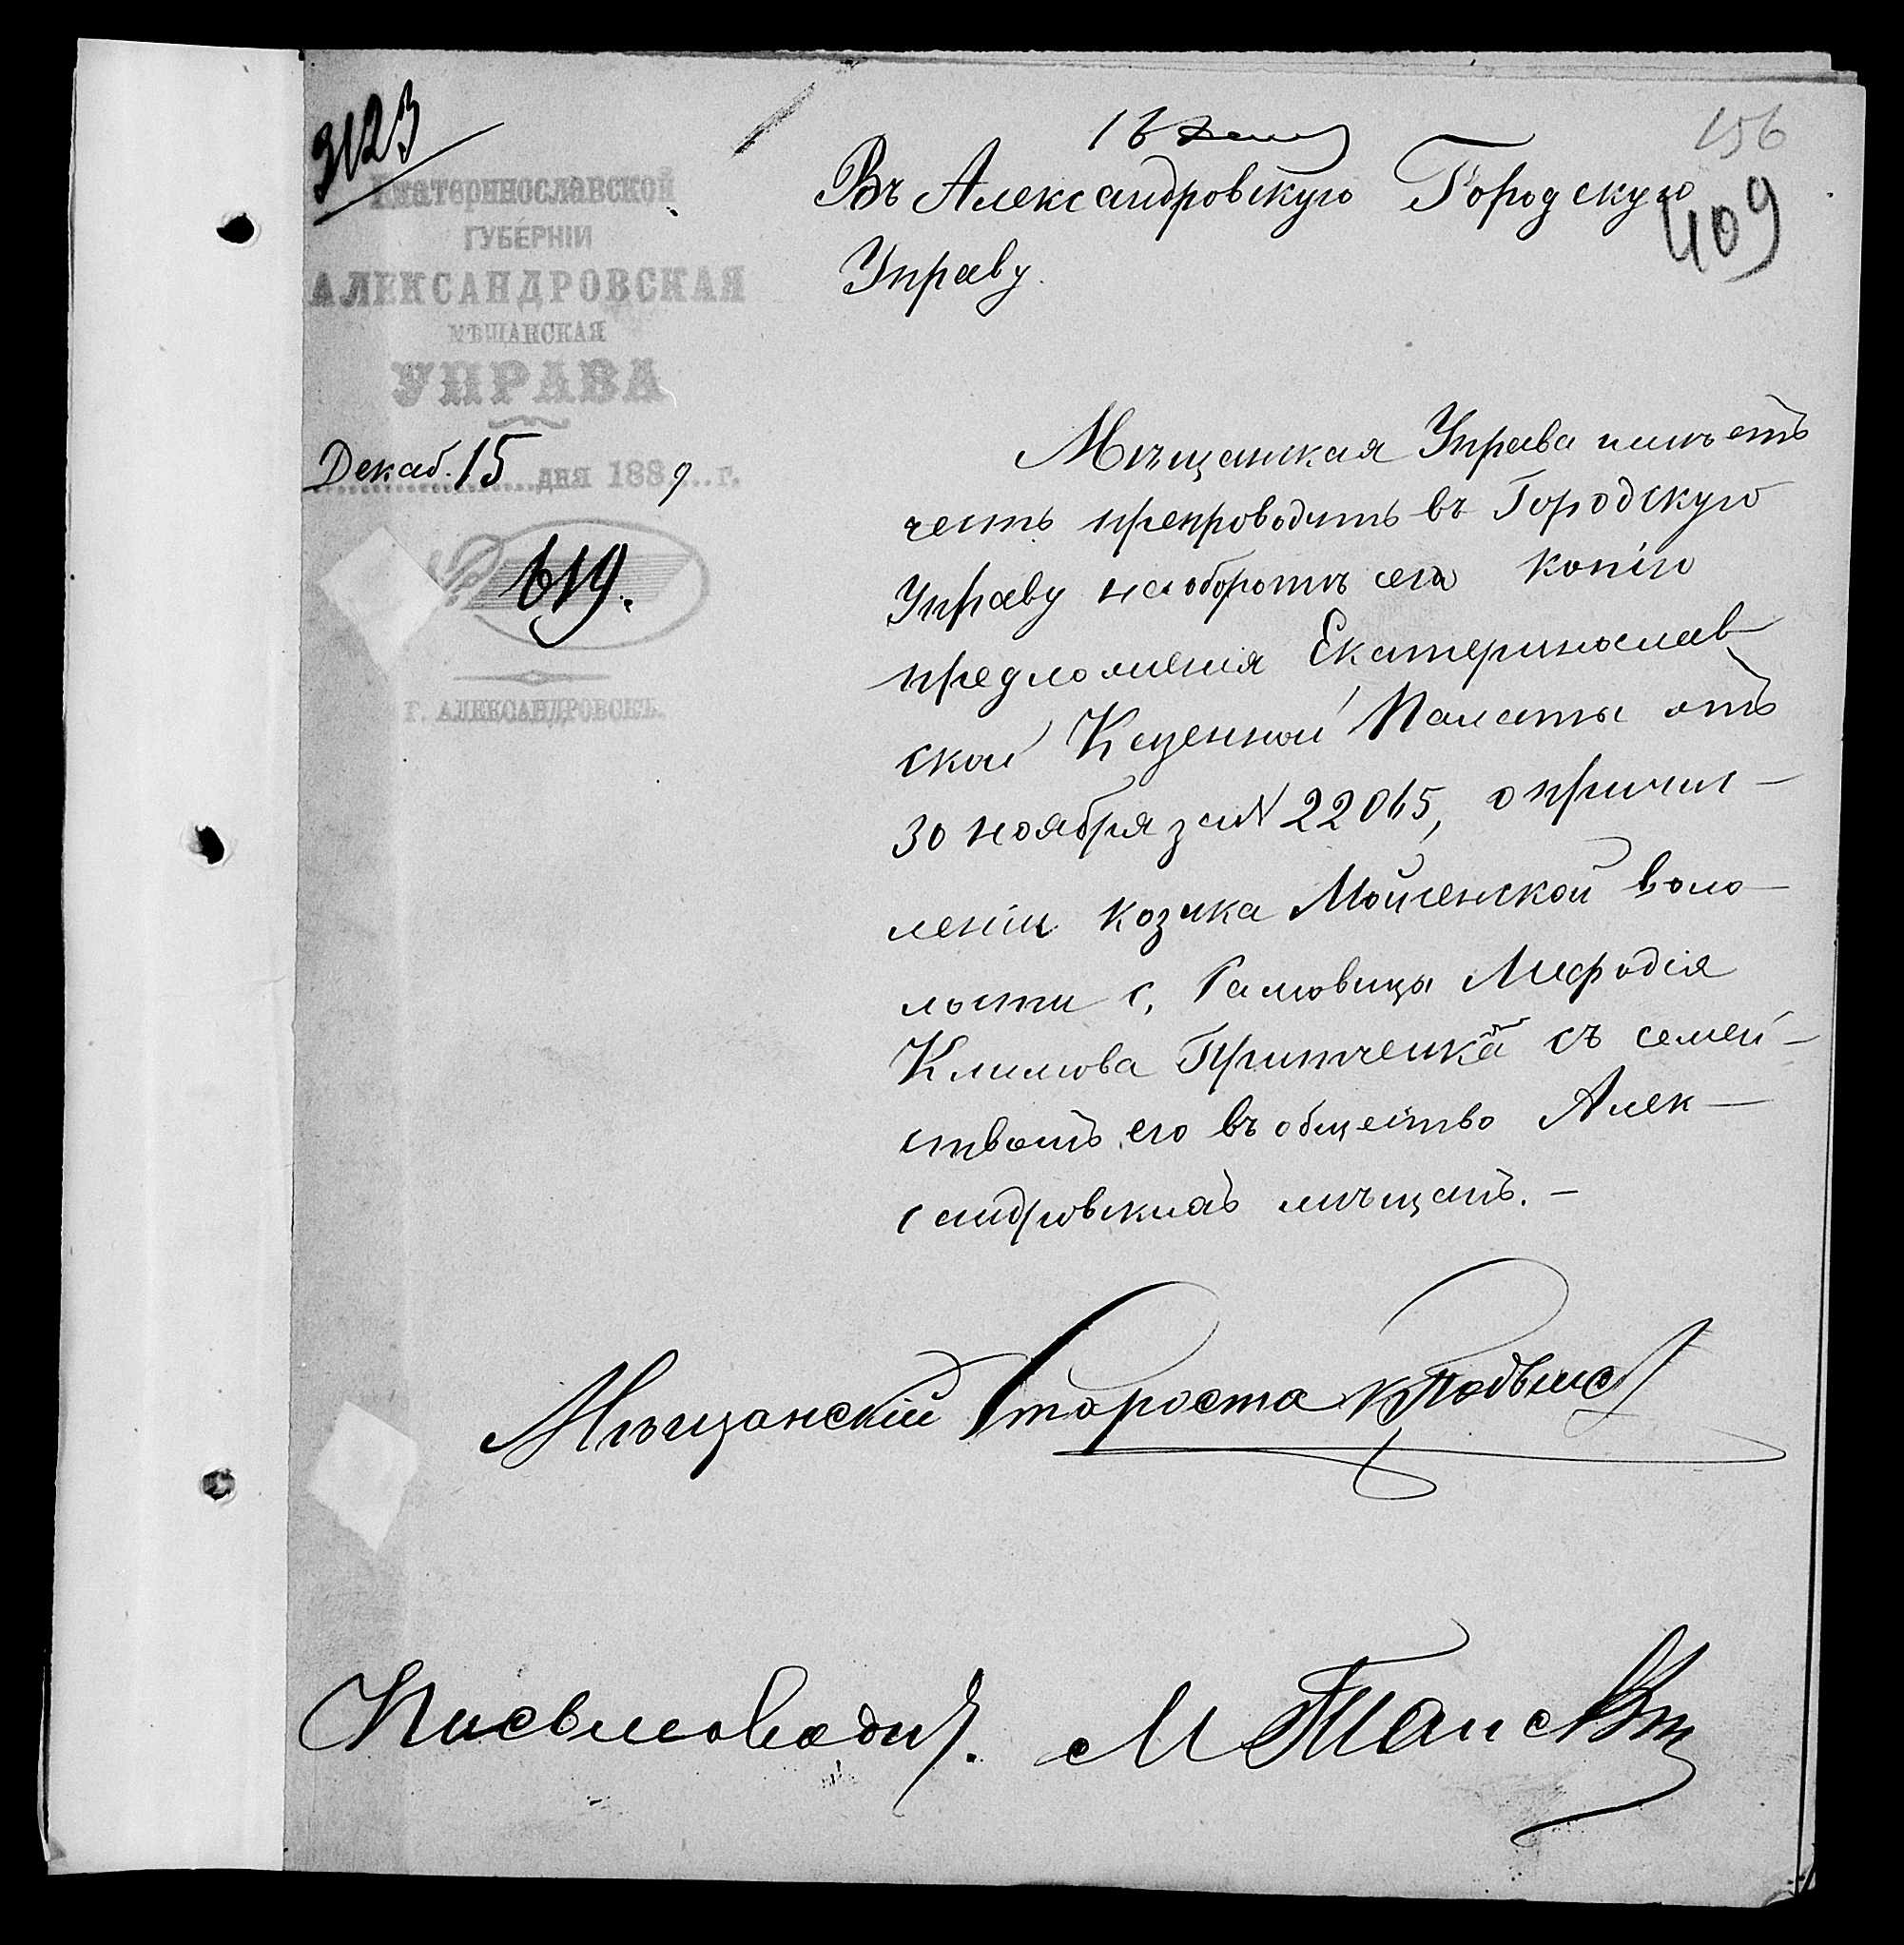 3123
156
409
Екатеринославской
ГУБЕРНІИ
АЛЕКСАНДРОВСКАЯ
МѢЩАНСКАЯ
УПРАВА
Декаб. 15 дня 1889 г.
619.
Г. АЛЕКСАНДРОВСКЪ.
16 Дек
Въ Александровскую Городскую
Управу.
Мѣщанская Управа имѣетъ
честь препроводить въ Городскую
Управу на оборотѣ сего копію
предложенія Екатеринослав
ской Казенной Палаты отъ
30 ноября за N 22065, о причис-
леніи козака Мойсенской воло-
лости с. Мефодія
Климова Притченка съ семей-
ствомъ его въ общество Алек-
сандровскихъ мѣщанъ. -
Мѣщанскій Староста
Письмоводит.